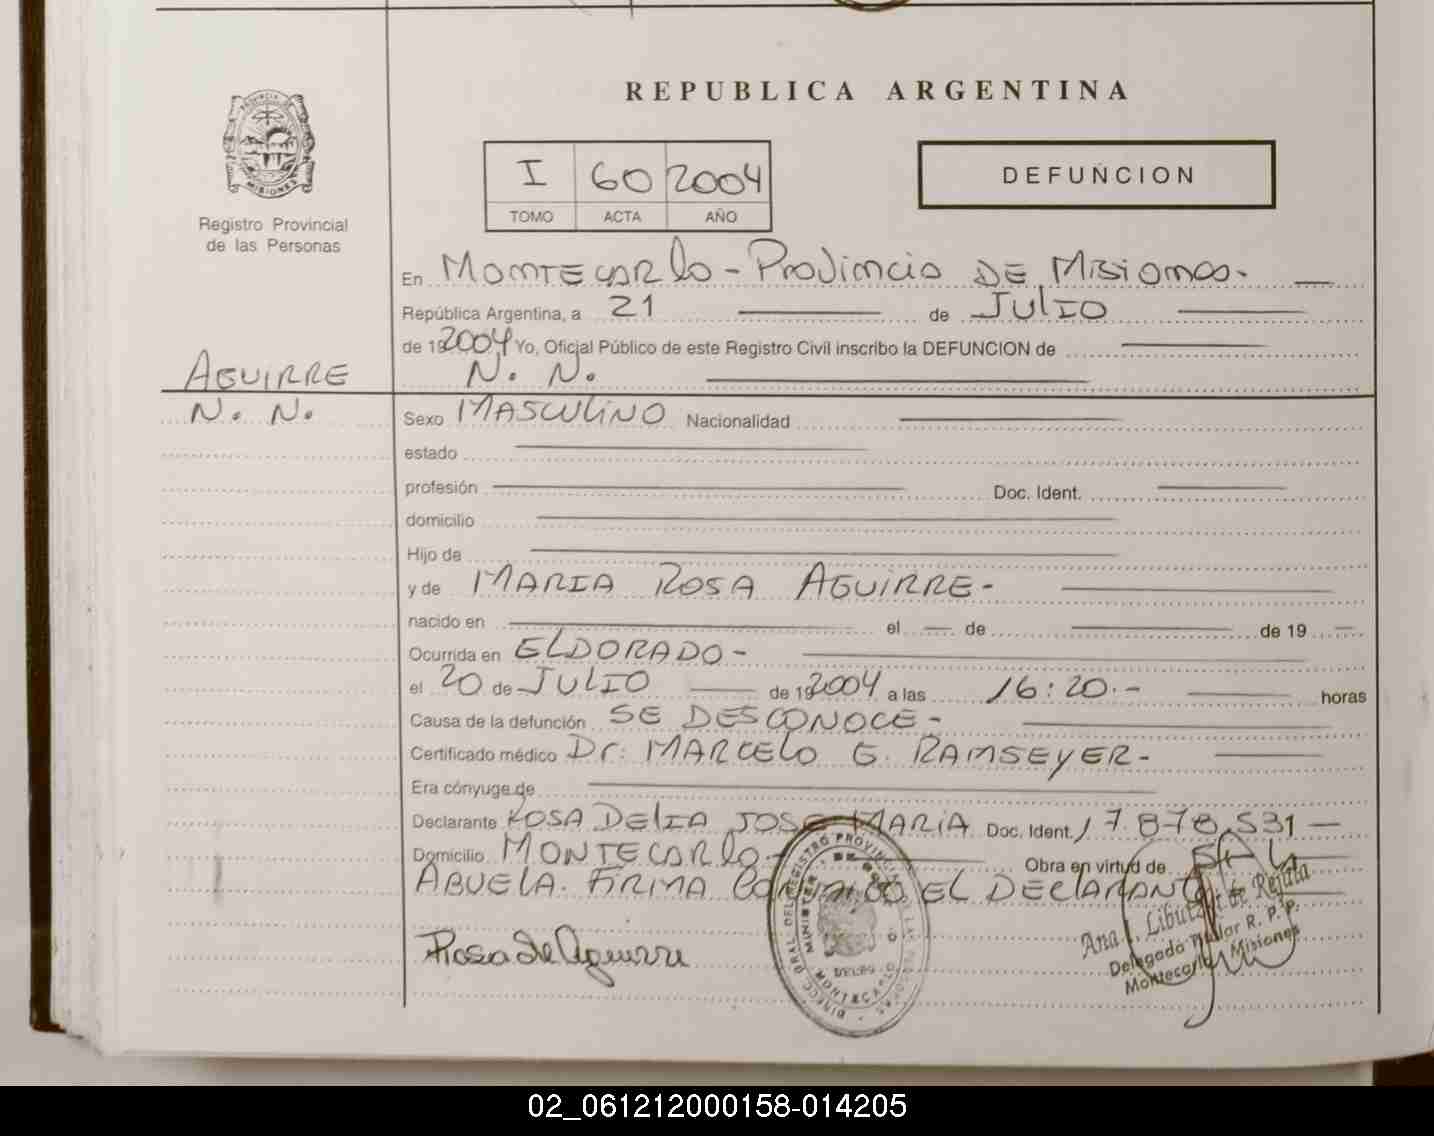 REPUBLICA ARGENTINA
PROVINCIA DE MISIONES
Registro Provincial
de las Personas
I 60 2004
TOMO ACTA AÑO
DEFUNCION
En MONTECARLO - PROVINCIA DE MISIONES-
República Argentina, a 21 de JULIO
de 192004 Yo, Oficial Público de este Registro Civil inscribo la DEFUNCION de
N. N.
AGUIRRE
N. N.
Sexo MASCULINO Nacionalidad
estado
profesión Doc. Ident.
domicilio
Hijo de
y de MARIA ROSA AGUIRRE-
nacido en el de de 19
Ocurrida en ELDORADO-
el 20 de JULIO de 192004 a las 16:20.- horas
Causa de la defunción SE DESCONOCE-
Certificado médico Dr: MARCELO G. RAMSEYER-
Era cónyuge de
Declarante ROSA DELIA JOSE MARIA Doc. Ident. 17.878.531
Domicilio MONTECARLO- Obra en virtud de SER
ABUELA. FIRMA CONMIGO EL DECLARANTE
Rosa de Aguirre
DELEG
MONTECARLO
Ana Libutzki de Rejala
Delegado Titular R. P. P.
Montecarlo Misiones
02_061212000158-014205